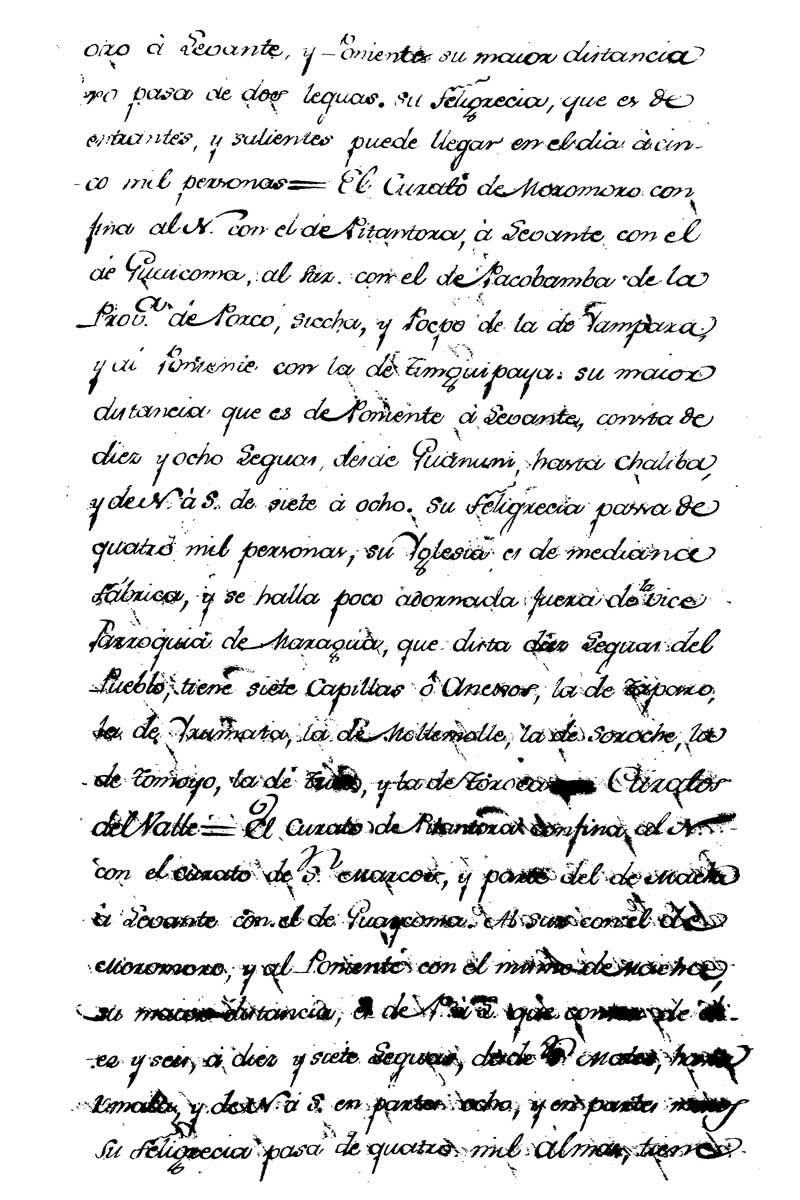 oro à Levante, y Poniente su maior distancia
no pasa de dos leguas. su Feligrecia, que es de
entrantes, y salientes puede llegar en el dia à cin-
-co mil personas = El Curato de Moromoro con
fina al N. con el de Pitantora, à Levante con el
de Guaicoma, al Sur. con el de Pacobamba de la
Prov.a de Porco, Siccha, y Pocpo de la de Yampara,
y al Poniente con la de Timquipaya: su maior
distancia que es de Poniente à Levante, consta de
diez y ocho Leguas, desde Guanuni, hasta Chaliba,
y de N. à S. de siete à ocho. Su Feligrecia passa de
quatro mil personas, su Yglesia es de mediana
Fábrica, y se halla poco adornada fuera de la Vice
Parroquia de Maragua, que dista diez Leguas del
Pueblo, tiene siete Capillas ô Anexos, la de
la de la de Mollemolle, la de Soroche, la
de Tomoyo, la de y la de Curatos
del Valle = El Curato de Pitantora confina al N.
con el curato de S.n Marcos, y parte del de Macha
à Levante con el de Guaycoma. Al sur con el de
Moromoro, y al Poniente con el mismo de Macha,
su maior distancia, es de N. à S. que de di-
ez y seis, a diez y siete Leguas, desde hasta
y de N. à S. en partes ocho, y en partes menos
su Feligrecia pasa de quatro mil almas, tiene